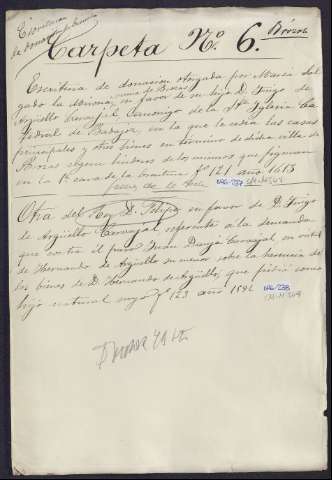 Escritura
de donacion
Carpeta Nº 6. Brozas
Escritura de donacion otorgada por Maria Sal
gado la donona, vecina de Brozas en favor de su hijo D. Iñigo de
Argüello Carvajal Canonigo de la Sta Iglesia Ca
tedral de Badajoz, en la que le cedia las casas
principales y otros bienes en termino de dicha villa de
Brozas cuyos linderos de los mismos que figuran
en la 1ª cara de la escritura fº 121 año 1613
Otra del Rey D. Felipe en favor de D. Iñigo
de Argüello Carvajal referente a la demanda
que contra el puso Juan Carvajal en virtud
de Hernando de Argüello su menor sobre la herencia de
los bienes de D. Hernando de Argüello, que pedia como
hijo natural suyo fº 123 año 1592